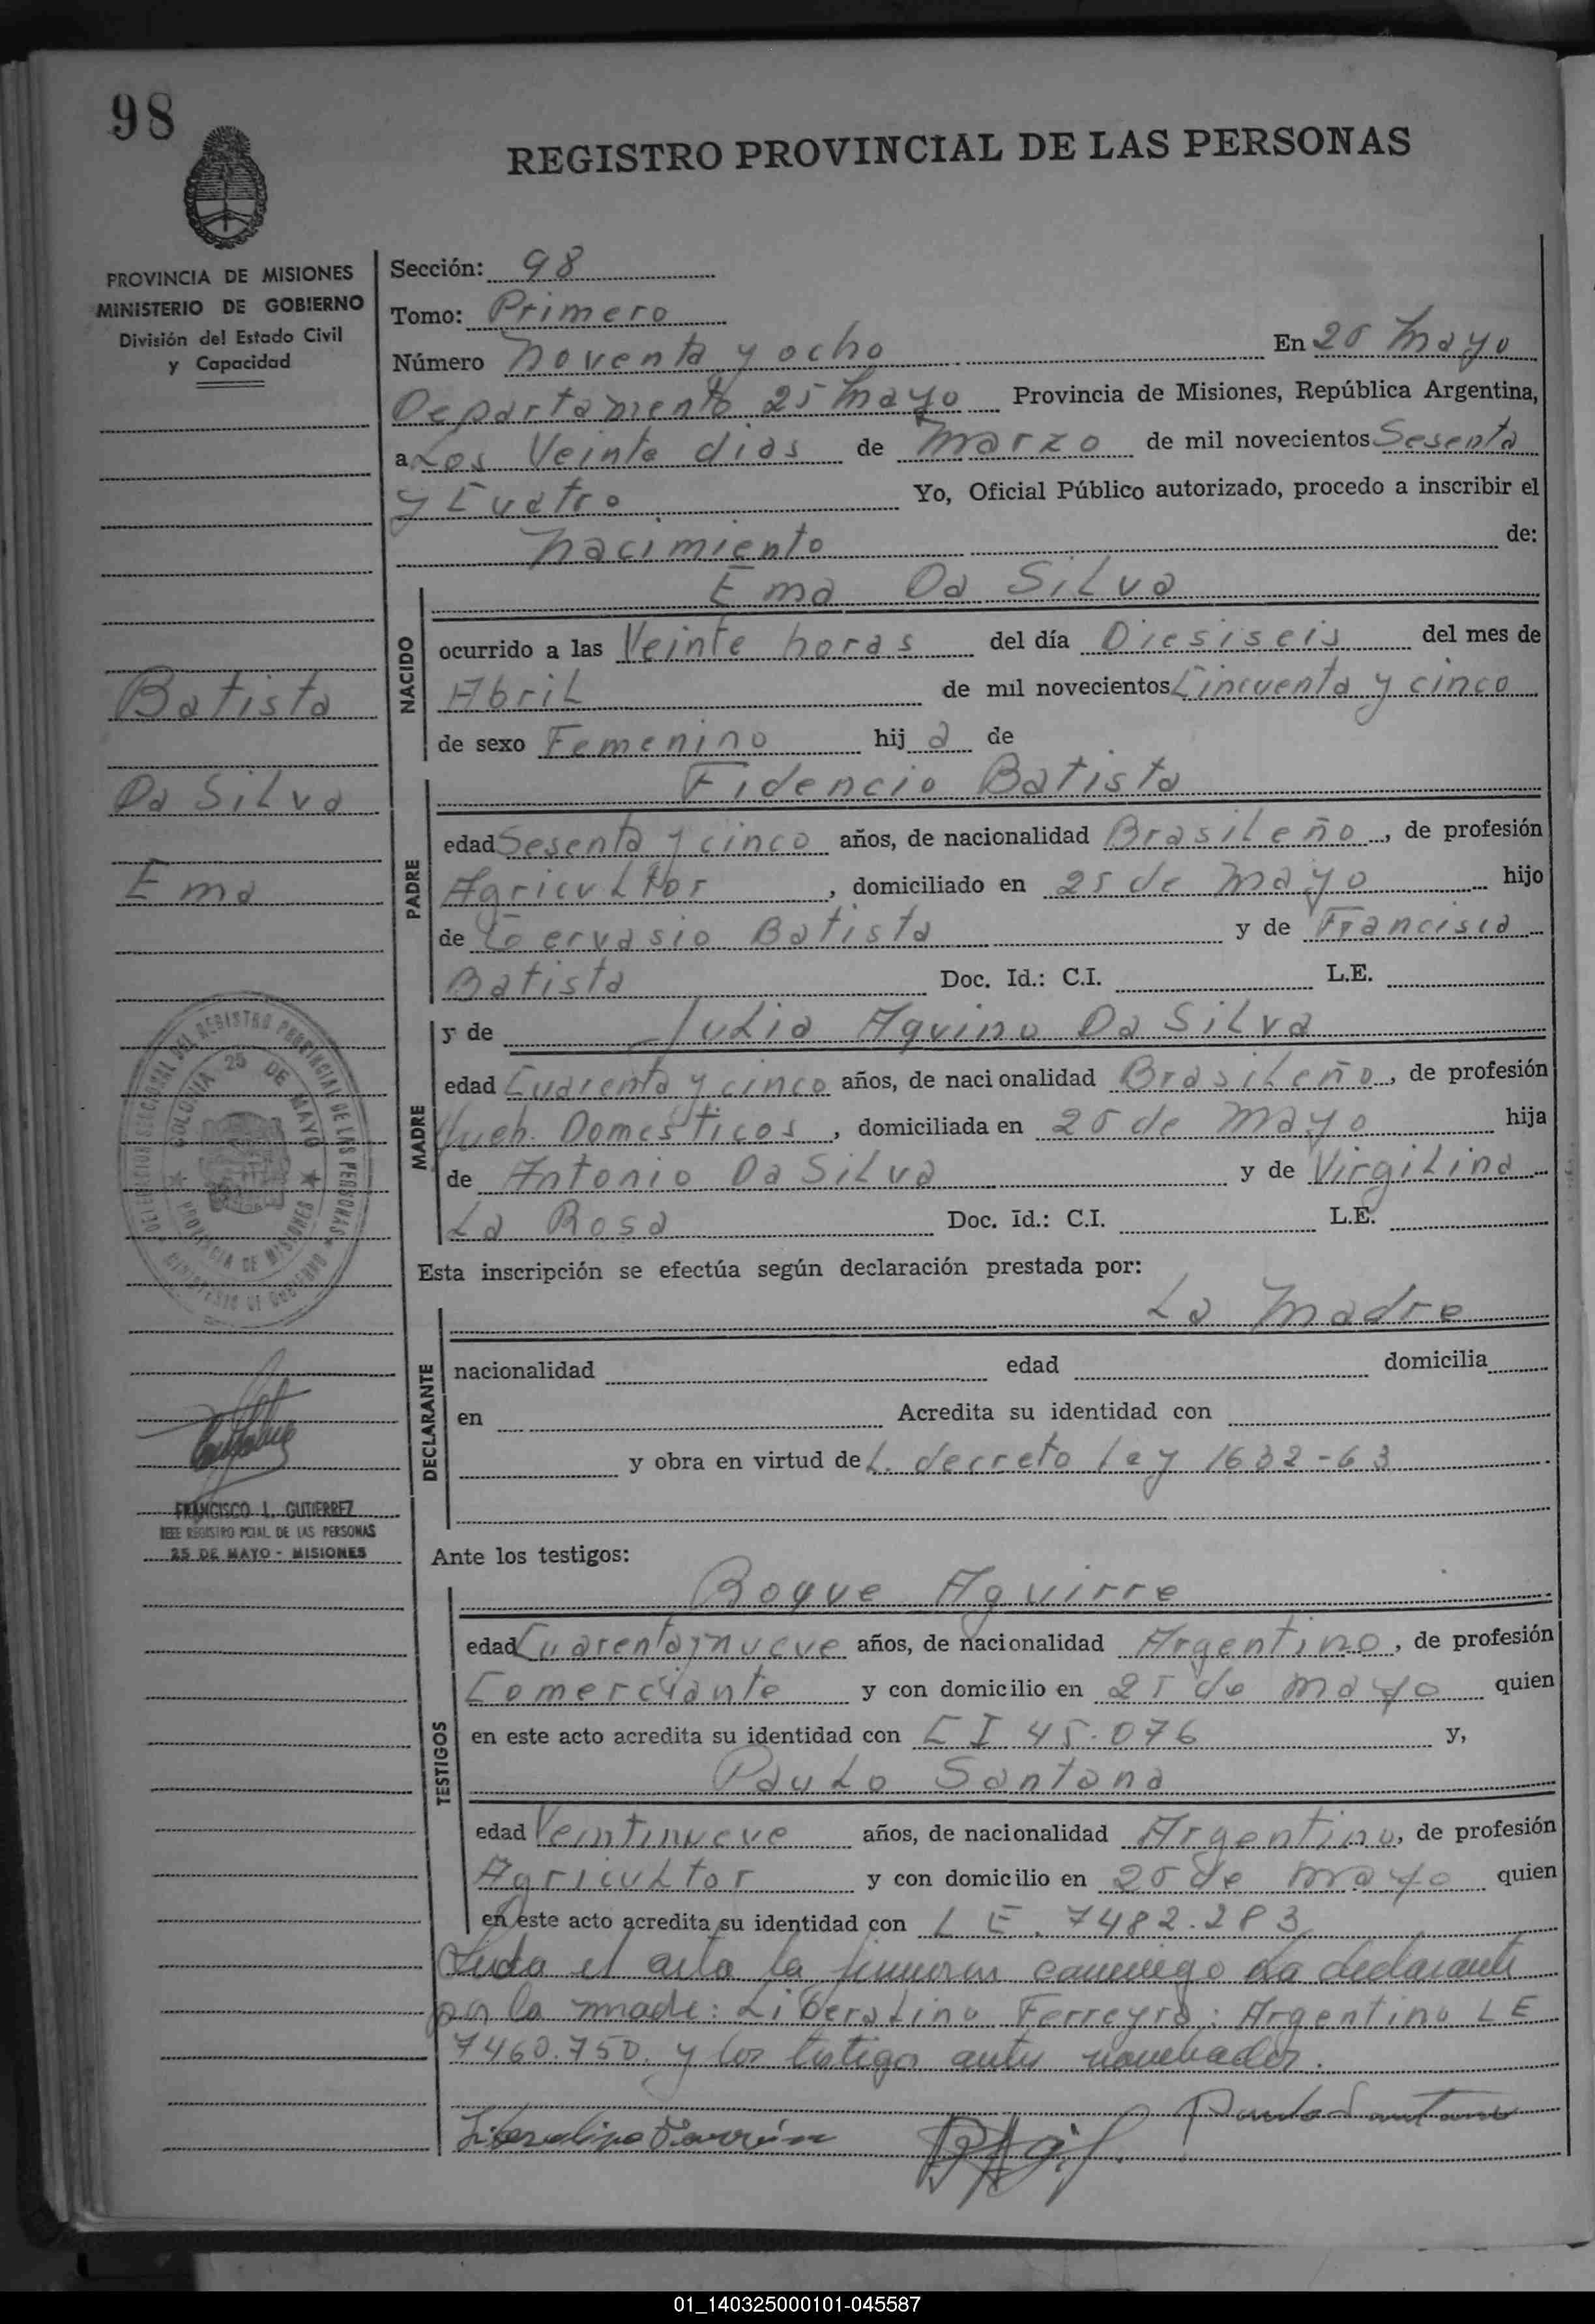 98
REGISTRO PROVINCIAL DE LAS PERSONAS
PROVINCIA DE MISIONES
MINISTERIO DE GOBIERNO
División del Estado Civil
y Capacidad
Sección: 98
Tomo: Primero
Número Noventa y ocho En 25 Mayo
Departamento 25 Mayo Provincia de Misiones, República Argentina,
a Los Veinte dias de Marzo de mil novecientos Sesenta
y Cuatro Yo, Oficial Público autorizado, procedo a inscribir el
Nacimiento de:
Ema Da Silva
NACIDO
ocurrido a las Veinte horas del día Diesiseis del mes de
Abril de mil novecientos Cincuenta y cinco
de sexo Femenino hija de
Batista
Da Silva
Ema
PADRE
Fidencio Batista
edad Sesenta y cinco años, de nacionalidad Brasileño, de profesión
Agricultor, domiciliado en 25 de Mayo hijo
de Gervasio Batista y de Francisca
Batista Doc. Id.: C.I. L.E.
MADRE
y de Julia Aquino Da Silva
edad Cuarenta y cinco años, de nacionalidad Brasileño, de profesión
Queh. Domésticos, domiciliada en 25 de Mayo hija
de Antonio Da Silva y de Virgilina
La Rosa Doc. Id.: C.I. L.E.
DELEGACION SECCIONAL DEL REGISTRO PROVINCIAL DE LAS PERSONAS
MINISTERIO DE GOBIERNO
COLONIA 25 DE MAYO
PROVINCIA DE MISIONES
Esta inscripción se efectúa según declaración prestada por:
DECLARANTE
La Madre
nacionalidad edad domicilia
en Acredita su identidad con
y obra en virtud de L. decreto ley 1632-63
FRANCISCO L. GUTIERREZ
JEFE REGISTRO PCIAL. DE LAS PERSONAS
25 DE MAYO - MISIONES
Ante los testigos:
TESTIGOS
Roque Aguirre
edad Cuarenta y nueve años, de nacionalidad Argentino, de profesión
Comerciante y con domicilio en 25 de Mayo quien
en este acto acredita su identidad con CI 45.076 y,
Paulo Santana
edad Veintinueve años, de nacionalidad Argentino, de profesión
Agricultor y con domicilio en 25 de Mayo quien
en este acto acredita su identidad con LE. 7482.283
Leida el acta la firmaron conmigo La declarante
por la madre: Liberalino Ferreyra: Argentino LE
7460.750. y los testigos antes nombrados.
Paulo Santana
01_140325000101-045587